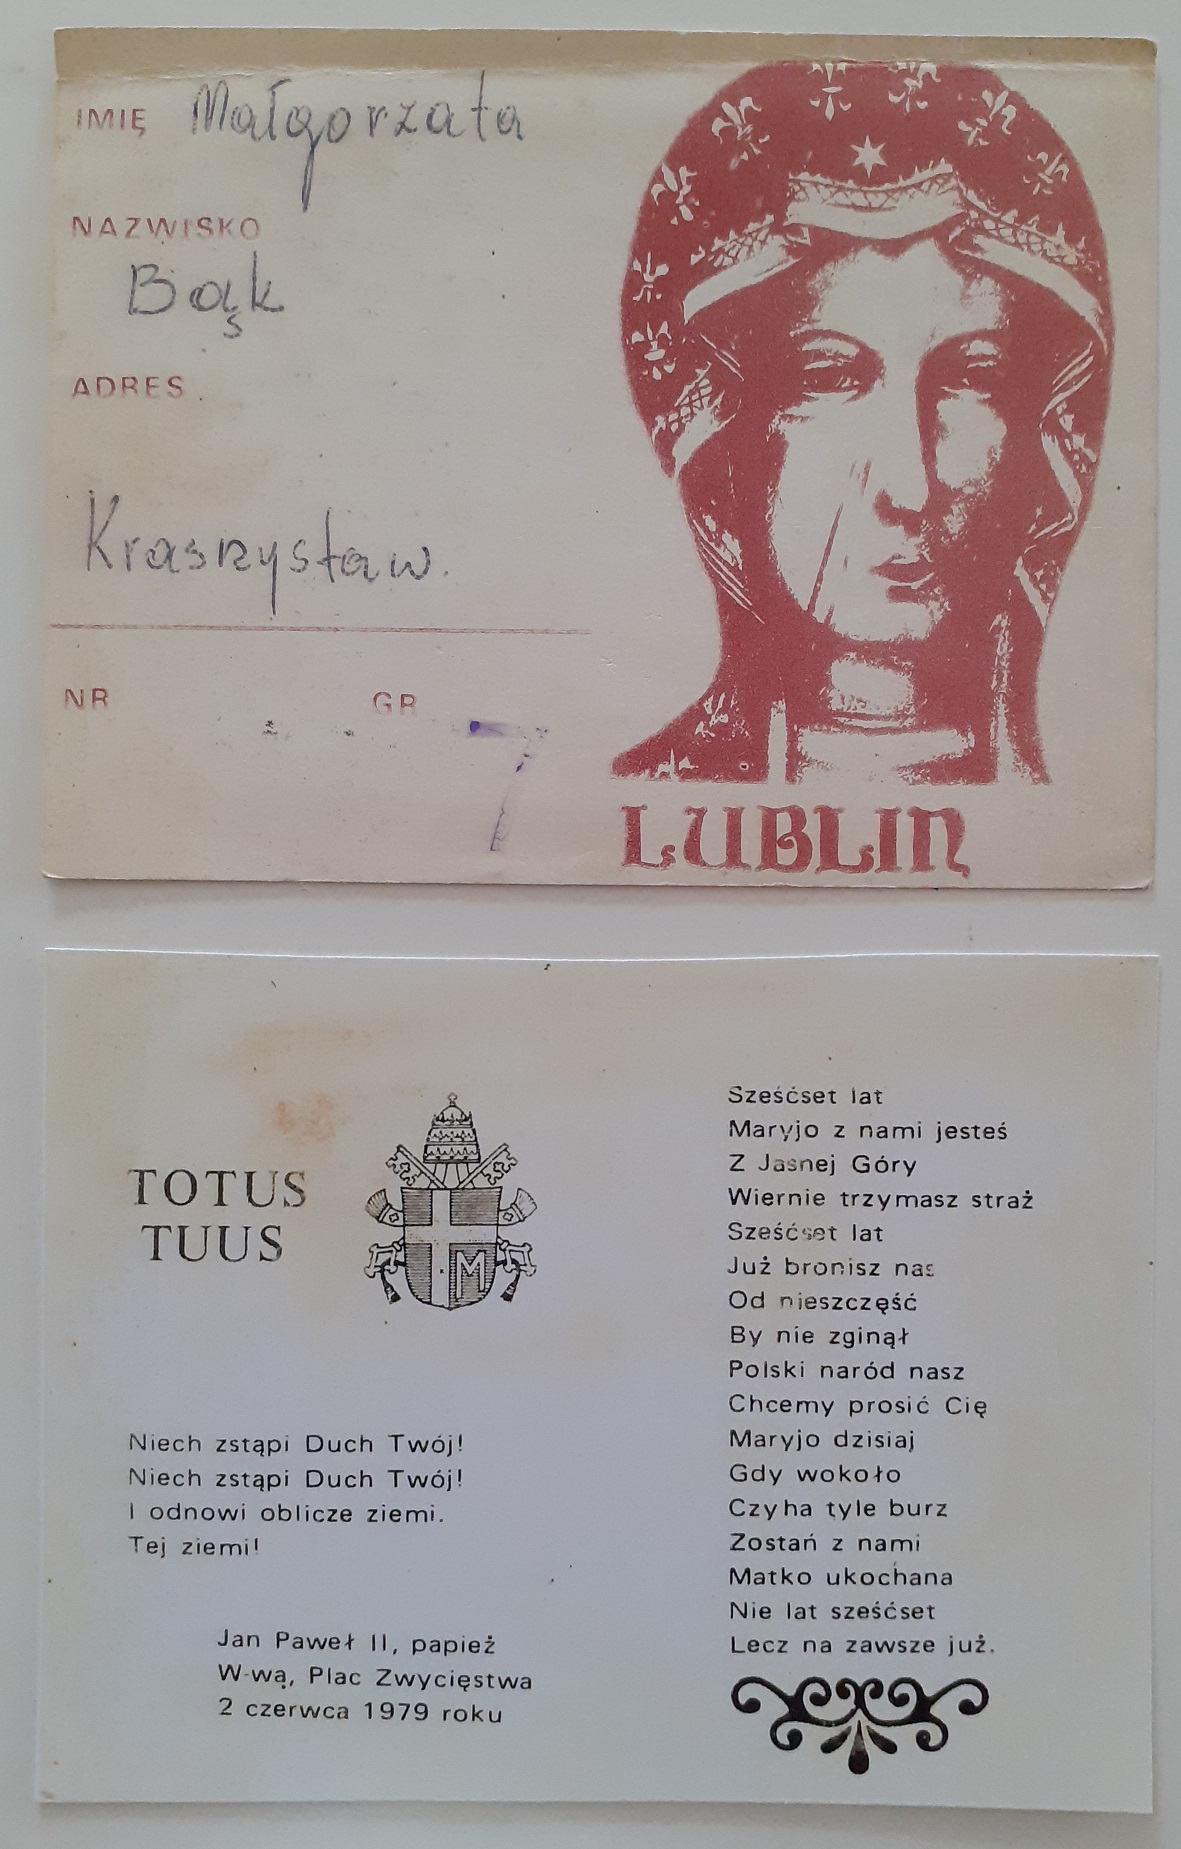 IMIĘ Małgorzata
NAZWISKO
Bąk
ADRES
Krasnystaw.
NR GR 7
LUBLIN
TOTUS
TUUS
M
Niech zstąpi Duch Twój!
Niech zstąpi Duch Twój!
I odnowi oblicze ziemi.
Tej ziemi!
Jan Paweł II, papież
W-wa, Plac Zwycięstwa
2 czerwca 1979 roku
Sześćset lat
Maryjo z nami jesteś
Z Jasnej Góry
Wiernie trzymasz straż
Sześćset lat
Już bronisz nas
Od nieszczęść
By nie zginął
Polski naród nasz
Chcemy prosić Cię
Maryjo dzisiaj
Gdy wokoło
Czyha tyle burz
Zostań z nami
Matko ukochana
Nie lat sześćset
Lecz na zawsze już.